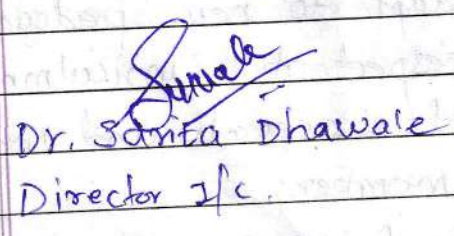 Dr. Sarita Dhawale
Director I/c.